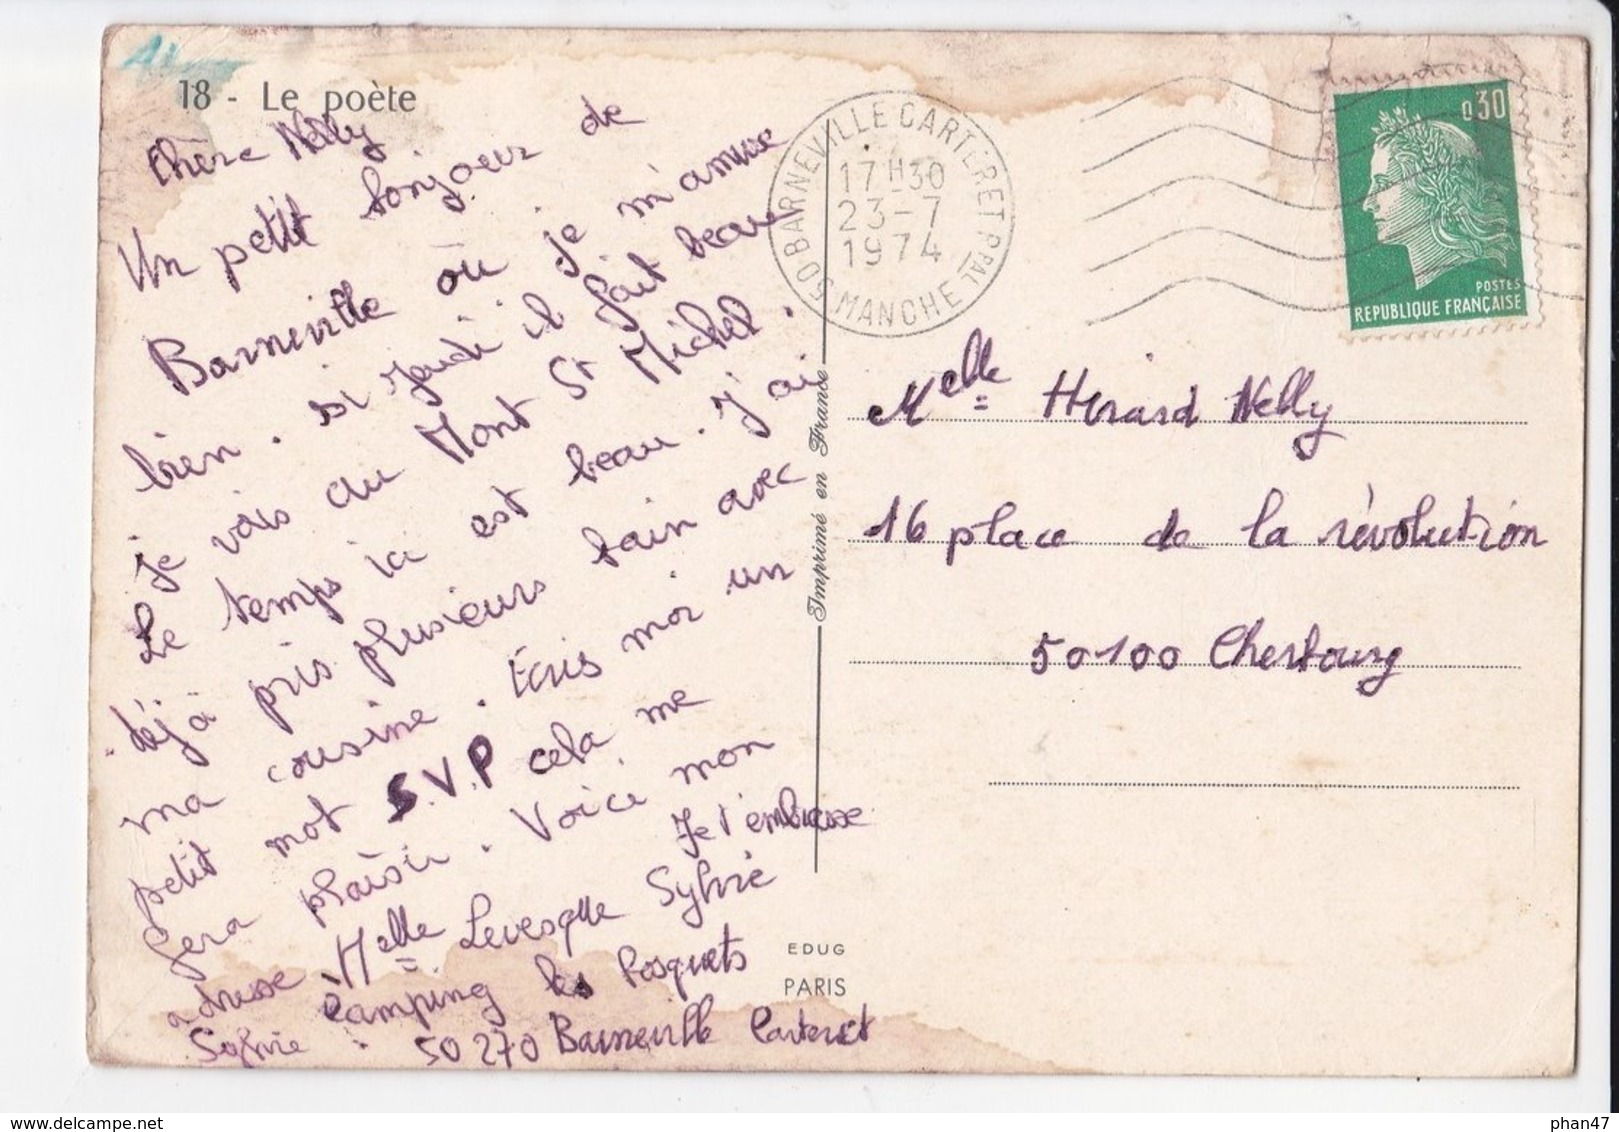 18 - Le poète
Chère Nelly
Un petit bonjour de
Barneville où je m'amuse
bien. si jeudi il fait beau
je vais au Mont St Michel.
Le temps ici est beau. J'ai
déjà pris plusieurs bain avec
ma cousine. Écris moi un
petit mot S.V.P cela me
fera plaisir. Voici mon
adresse Melle Levesque Sylvie
Camping les Bosquets
50 270 Barneville Carteret
Je t'embrasse
Sylvie
BARNEVILLE CARTERET PPAL
17H30
23-7
1974
50 MANCHE
0,30
POSTES
REPUBLIQUE FRANÇAISE
Imprimé en France
Melle Hérard Nelly
16 place de la révolution
50100 Cherbourg
EDUG
PARIS
phan47